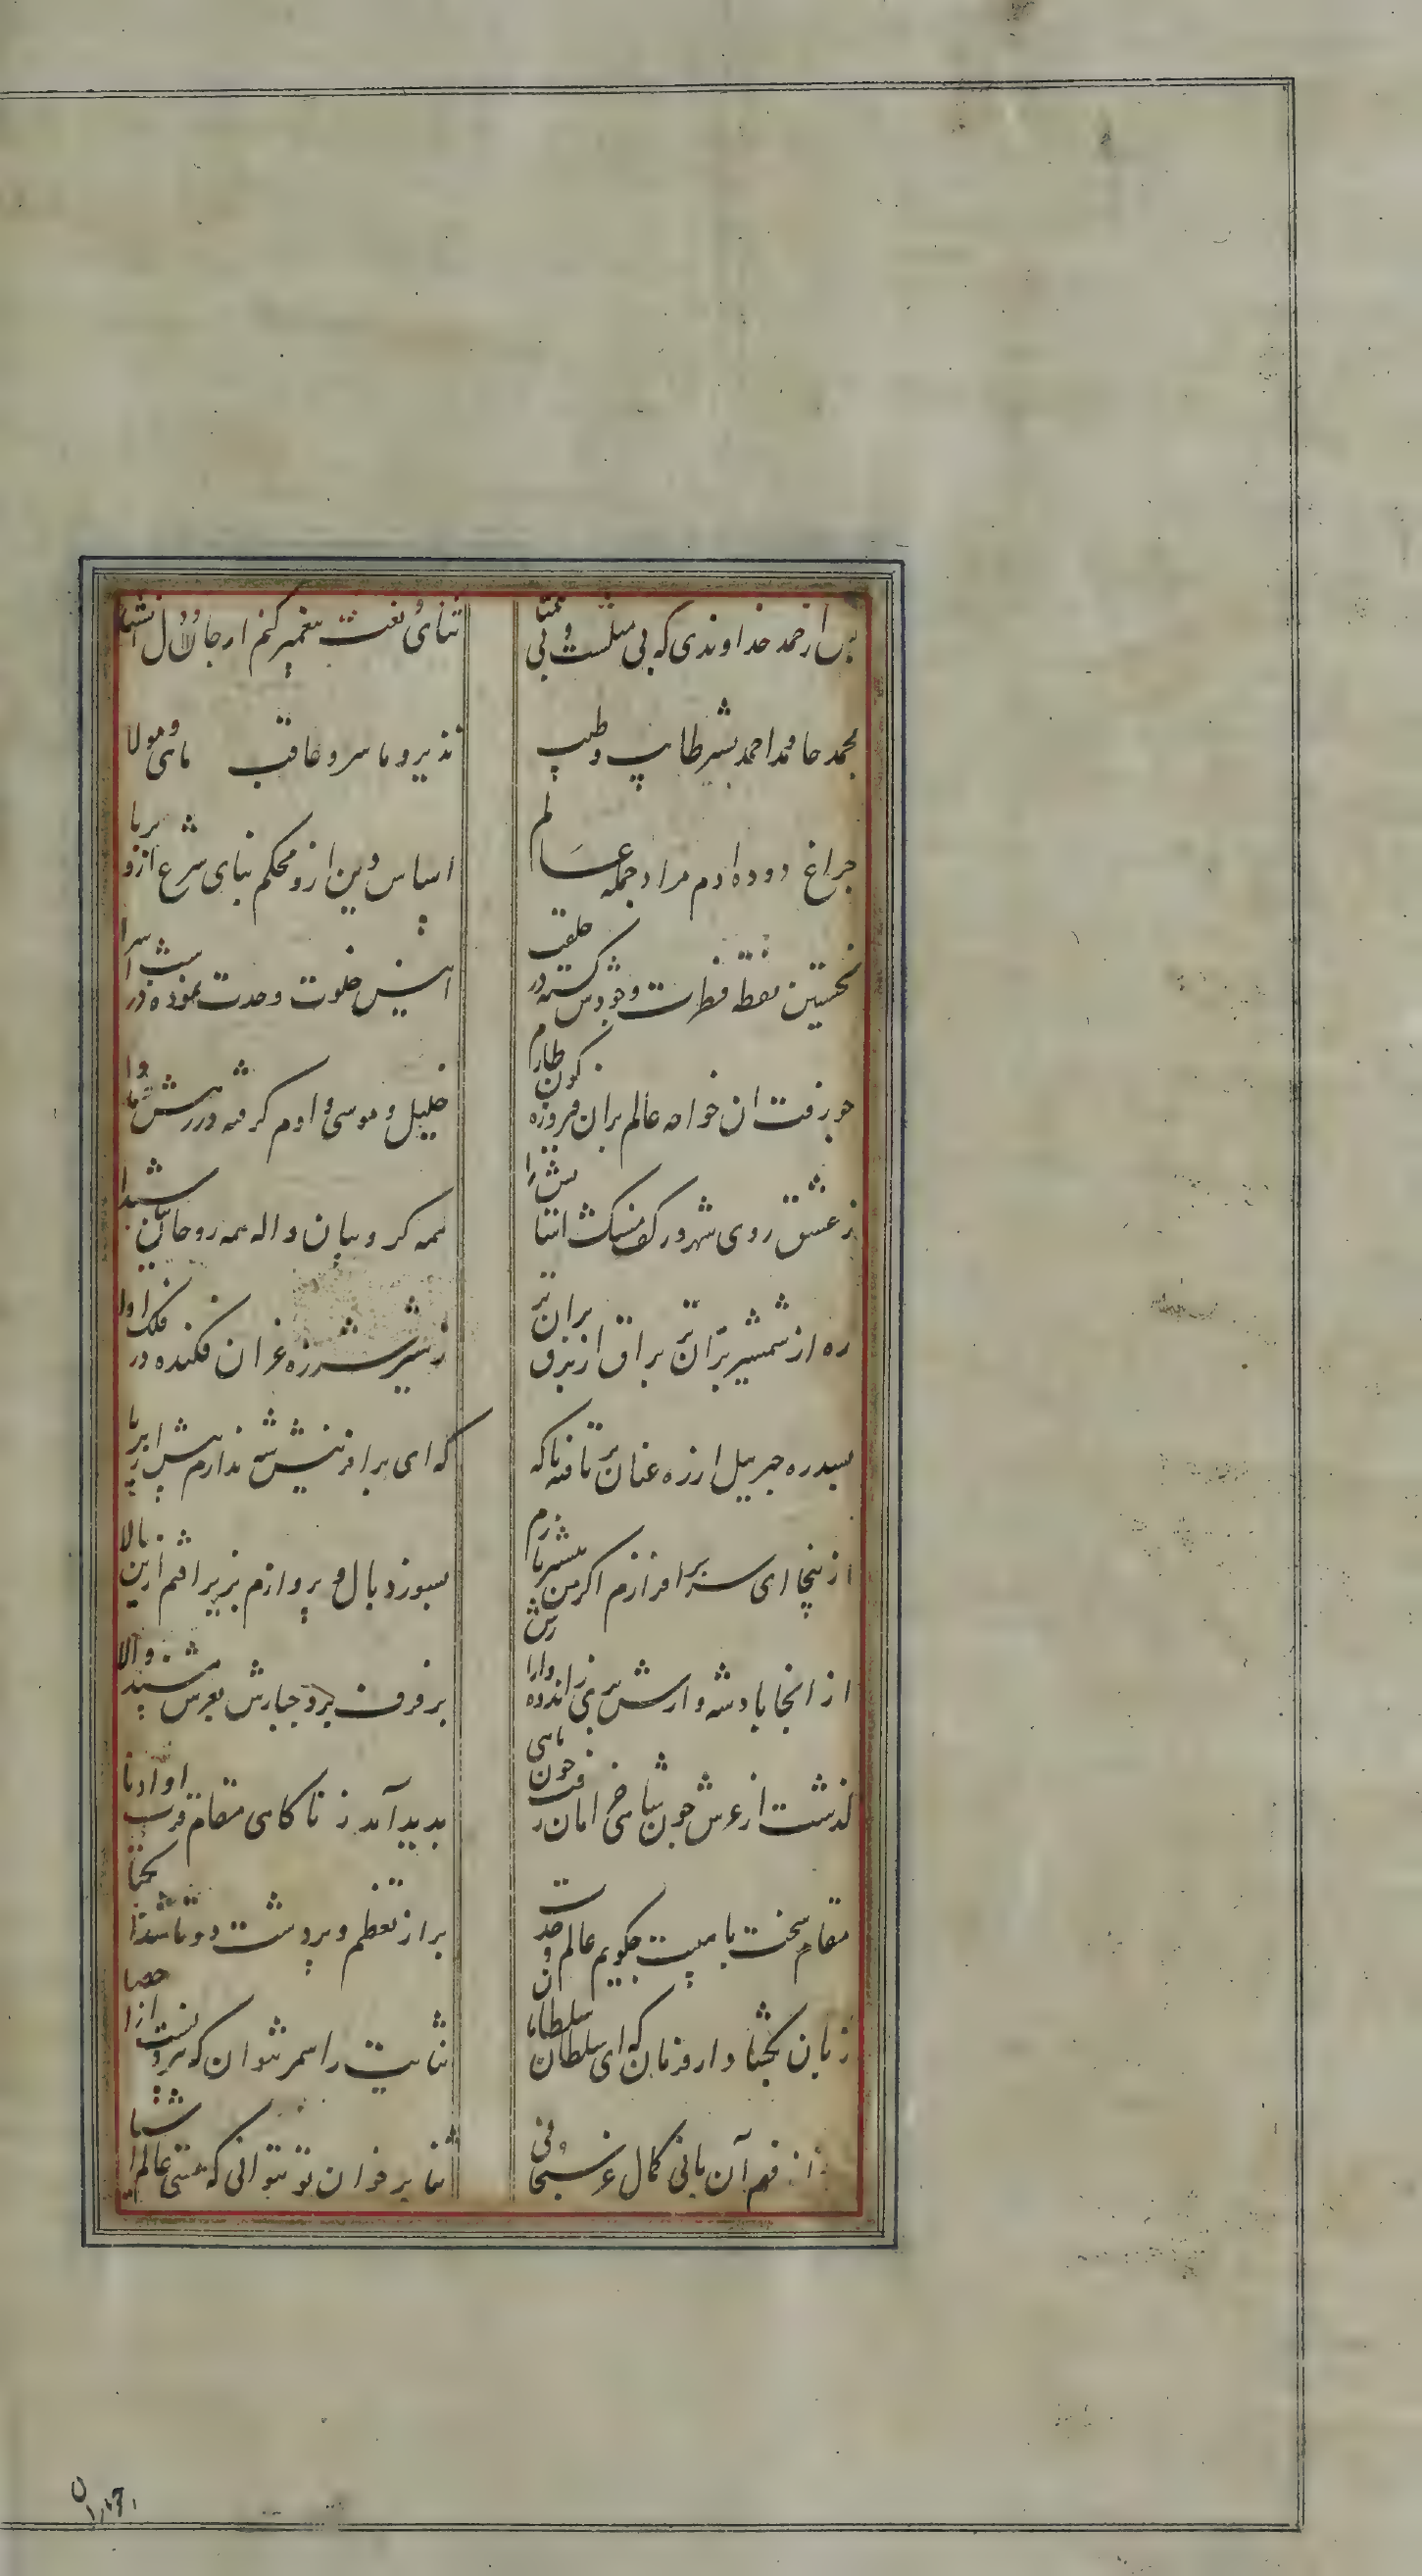 پس از حمد خداوندی که بی مثلست و بی همتا
ثنای نعت پیغمبر کنم از جان و دل انشا
محمد حامد احمد بشیر طاب و طیب
نذیر و یاسر و عاقب ماحی و مولا
چراغ دوده ادم مراد جمله عالم
اساس دین ازو محکم بنای شرع ازو بر پا
نخستین نقطه فطرت وجودش کشته در خلقت
انیس خلوت وحدت نموده در شب اسرا
چو رفت ان خواجه عالم بران فیروزه کون طارم
خلیل و موسی و ادم گرفته در رهش ماوا
ز عشق روی
همه کروبیان واله همه روحانیان شیدا
ره از شمشیر بران تر براق از برق بران تر
ز شیر شرزه غران فکنده در فلک اوا
بسدره جبرییل از ره عنان بر تافه ناکه
که ای بر افرینش شه ندارم پیش ازین یا را
از ینجا ای سر افرازم اکر من بیشتر تازم
بسوزد بال و پروازم بزیر افتم ازین بالا
از انجا پادشه وارش
بر فرف برد جبارش بعرش مسند والا
گذشت از عرش چون شاهی خرامان رفت چون ماهی
پدید آمد ز ناکاهی مقام قرب او ادنا
مقام سخت با هیبت چکویم عالم وحدت
براز تعظم و پر دشت دو تا شد
زبان بکشا دار فرمان که ای سلطان ان سلطانا
ثنایت را سمر نتوان که بیرونست از احصا
از فهم آن بانی کمال عز سبحانی
ثنا بر خوان تو نتوانی که هستی عالم اشیا